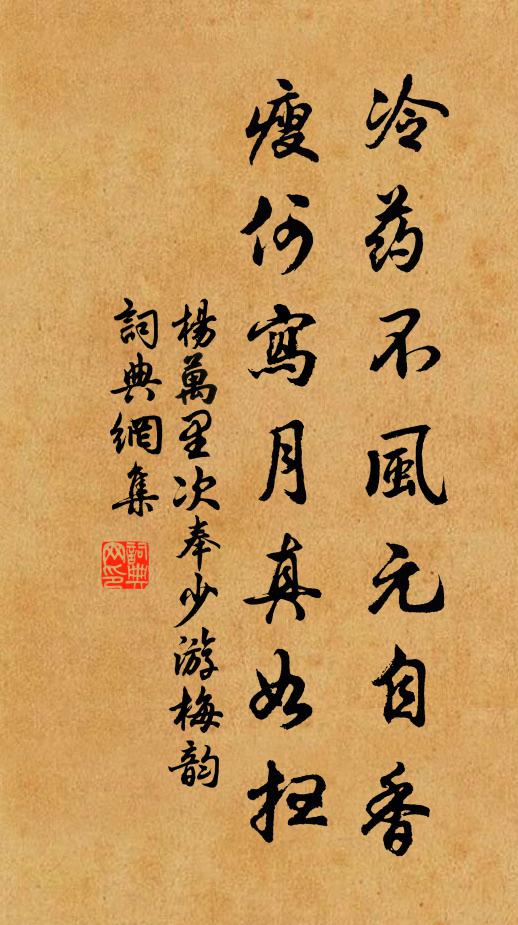 冷药不風元自香
瘦何寫月真如
楊萬里次奉少游梅韵
詞典網集
詞典
网印